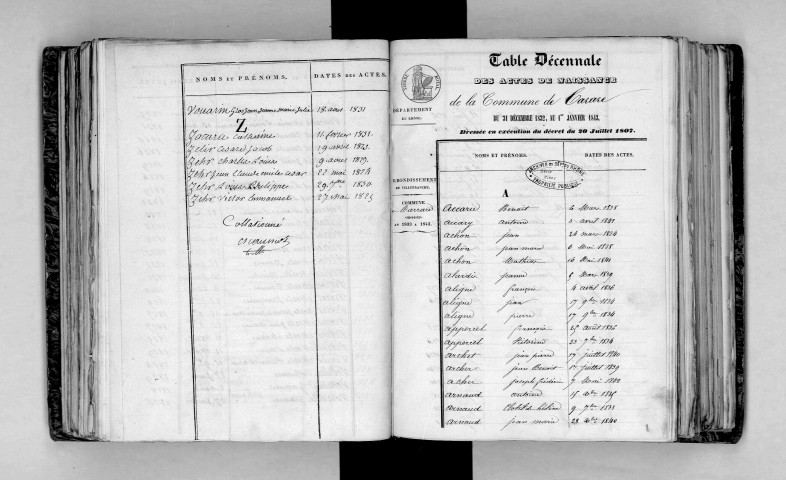 NOMS ET PRÉNOMS. DATES DES ACTES.
18 aout 1831
Z
Zacarie Catherine 11 fevrier 1831
Zehr Cesard Jacob
Zehr Charles Louis 9 aout 1829
22 mai 1824
Zehr Louis Philippe 29 7bre 1830
Zehr Victor Emmanuel 27 mai 1825
Collationné
Table Décennale
DES ACTES DE NAISSANCE
de la Commune de Tarare
DU 31 DÉCEMBRE 1832, AU 1er JANVIER 1843.
Dressée en exécution du décret du 20 Juillet 1807.
DÉPARTEMENT
DU RHÔNE.
ARRONDISSEMENT
DE VILLEFRANCHE.
COMMUNE
de 1833 à 1843.
NOMS ET PRÉNOMS. DATES DES ACTES.
A
accarie Benoit 6 Mars 1838
accary antoine 3 avril 1841
achon jean 24 mars 1834
achon jean marie 6 Mai 1838
achon Mathieu 16 Mai 1841
8 Mars 1839
aligne françois 4 avril 1836
aligne jean 17 9bre 1834
aligne pierre 17 9bre 1834
appercel françoise 25 aout 1836
appercel Victorine 23 7bre 1834
archet jean pierre 17 juillet 1840
archer jean Benoit 17 juillet 1839
acher joseph 7 Mai 1842
arnaud antoine
arnaud Clotilde hélène 9 7bre 1838
arnaud jean marie 28 Xbre 1840